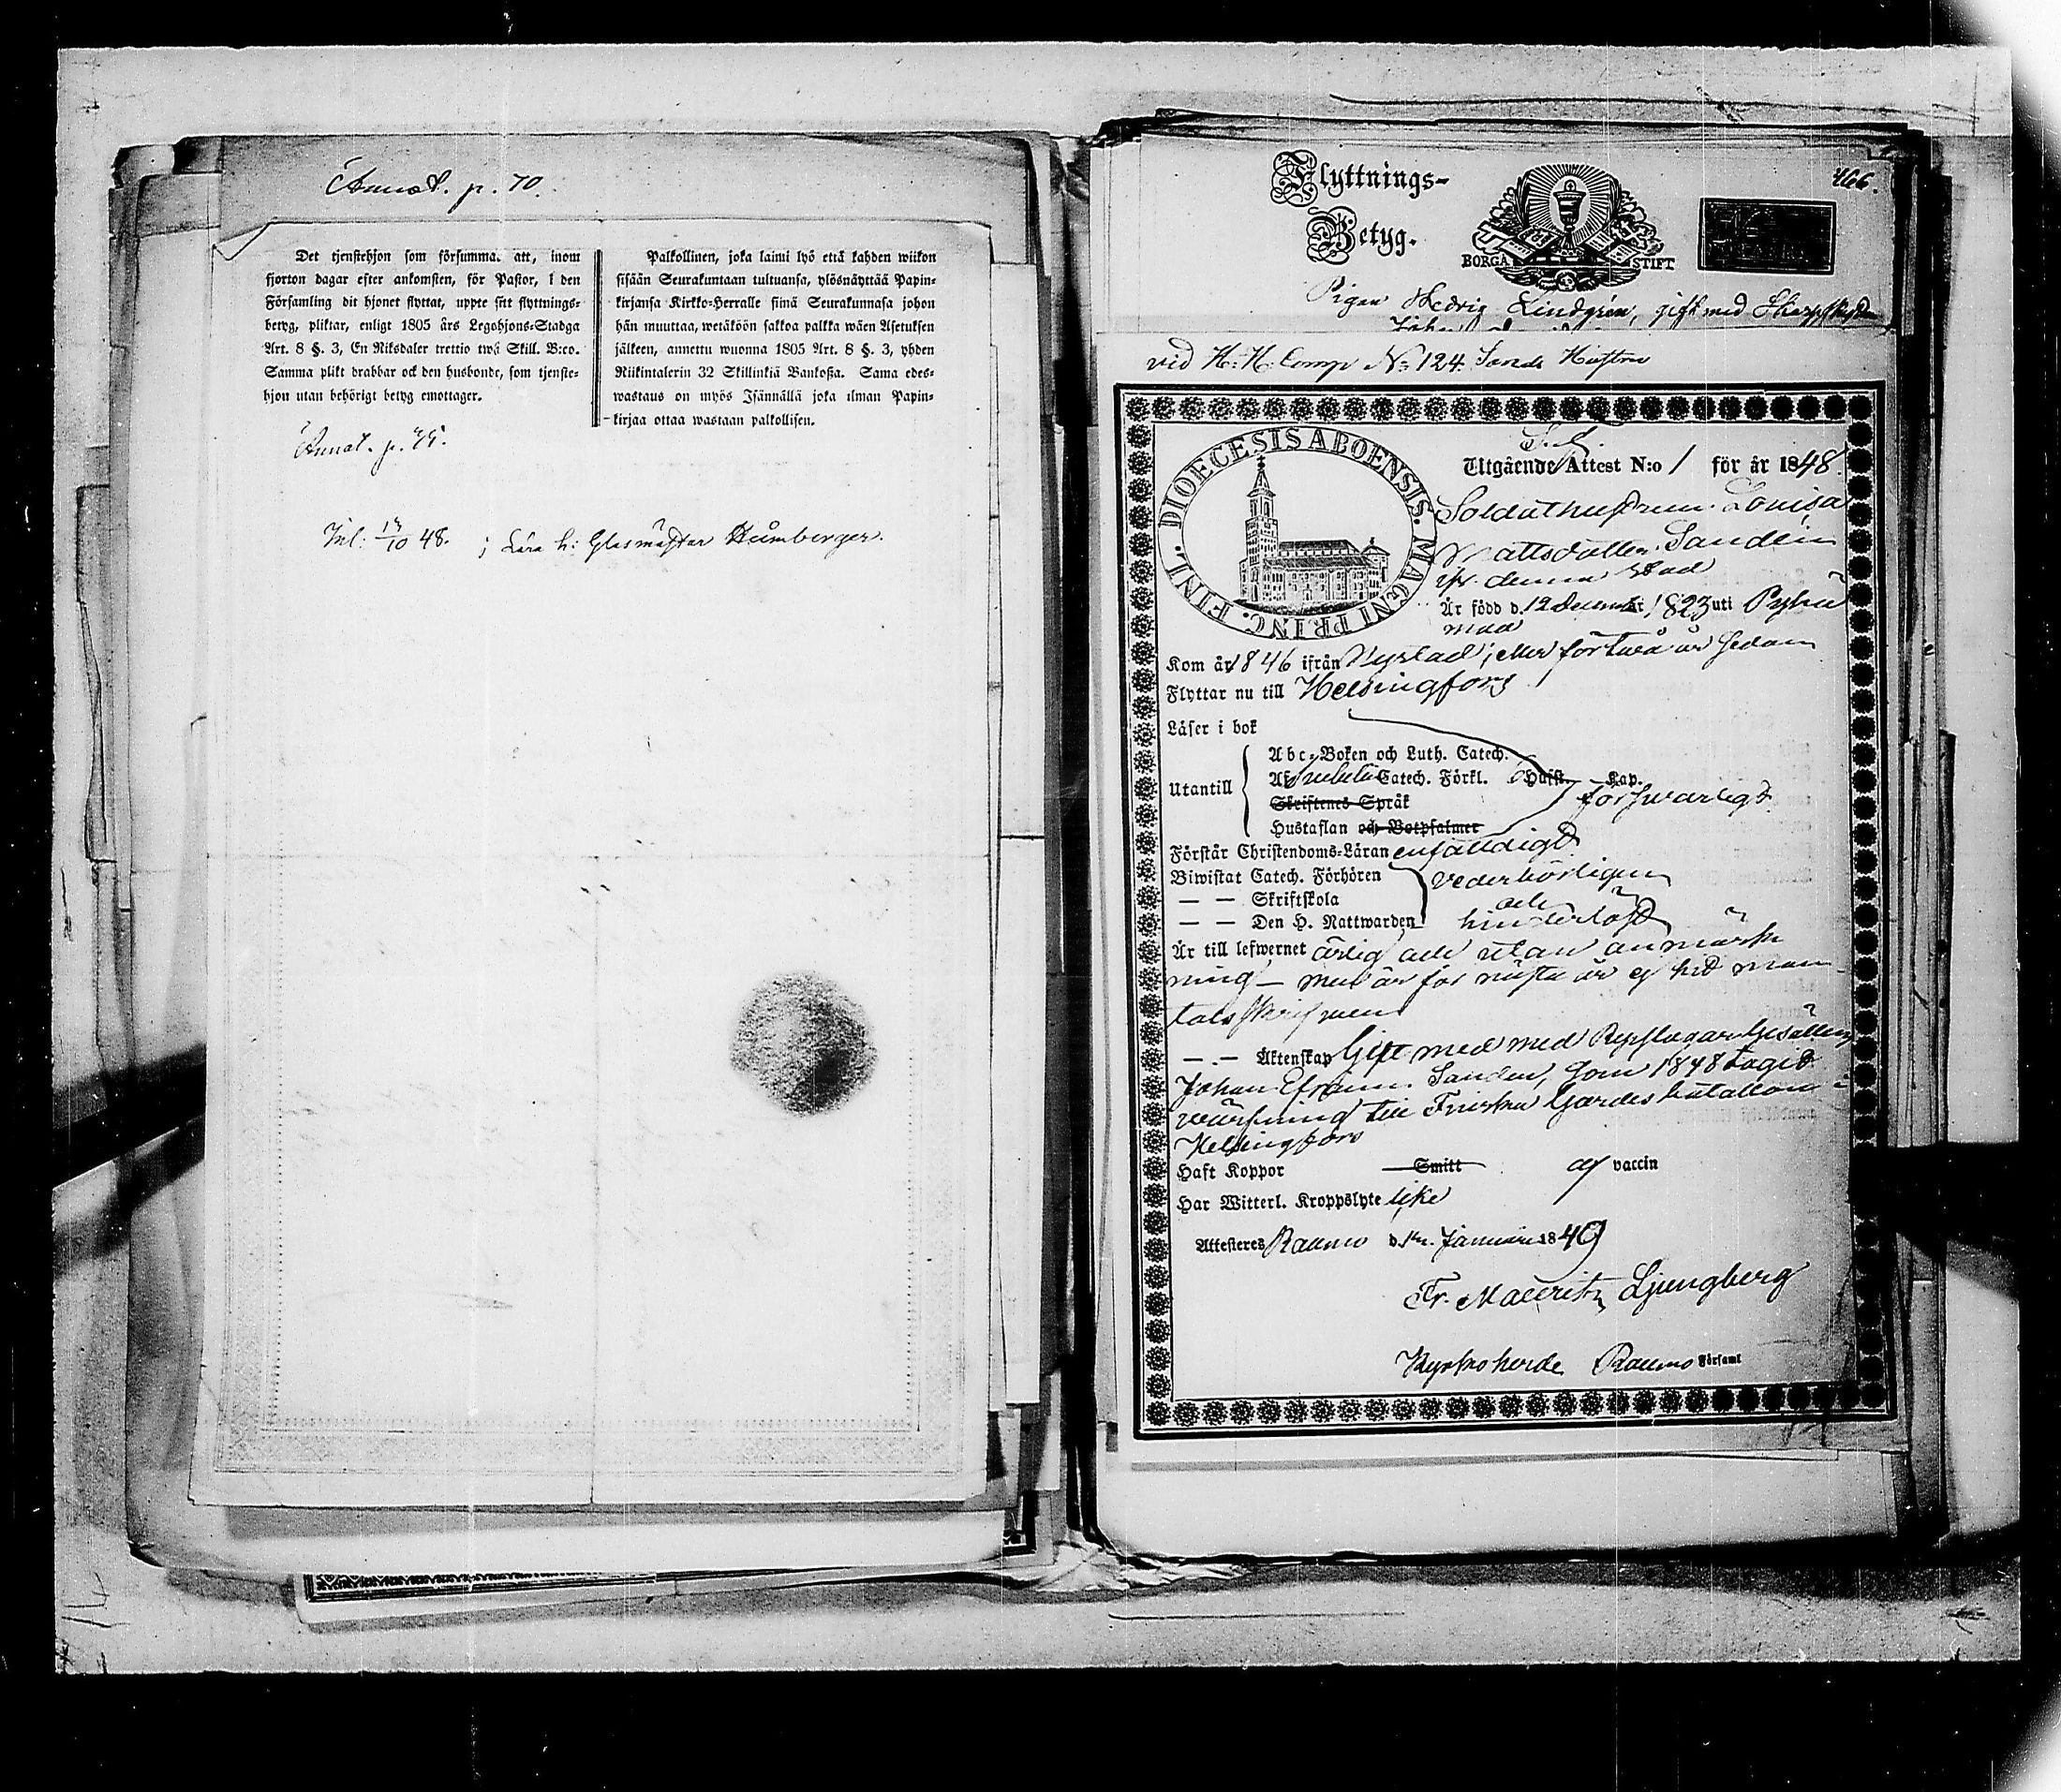 Annot. p. 70.
Det tjenstehjon som försumma. att, inom
fjorton dagar efter ankomsten, för Pastor, i den
Församling dit hjonet flyttat, uppte sitt flyttnings-
betyg, pliktar, enligt 1805 års Legohjons-Stadga
Art. 8 §. 3, En Riksdaler trettio twå Skill. B:co.
Samma plikt drabbar ock den husbonde, som tjenste-
hjon utan behörigt betyg emottager.
Palkollinen, joka laimi lyö että kahden wiikon
sisään Seurakuntaan tultuansa, ylösnäyttää Papin-
kirjansa Kirkko-Herralle siinä Seurakunnasa johon
hän muuttaa, wetäköön sakkoa palkka wäen Asetuksen
jälkeen, annettu wuonna 1805 Art. 8 §. 3, yhden
Riikintalerin 32 Skillinkiä Bankoßa. Sama edes-
wastaus on myös Isännällä joka ilman Papin-
kirjaa ottaa wastaan palkollisen.
Annot. p. 75.
Inl: 13/10 48. ; Lära h: Glasmästar
Flyttnings-
Betyg.
BORGÅ STIFT
466.
Pigan Hedvig Lindgrén, gift med Skarpskytten
vid H. H. Comp No 124 Hustru
DIOECESIS ABOENSIS. MAGNI PRINC. FINL.
Utgående Attest N:o 1 för år 1848.
Soldathustrun Louisa
Mattsdotter Sandén
ifr. denna Stad
Är född d. 12 December 1823 uti Pyhä
maa
Kom år 1846 ifrån Nystad, eller för två år sedan
Flyttar nu till Helsingfors
Läser i bok
Utantill
Abc-Boken och Luth. Catech.
Catech. Förkl. Kap.
försvarligt
Skriftenes Språk
Hustaflan och Botpsalmer
Förstår Christendoms-Läran enfaldigt
Biwistat Catech. Förhören vederbörligen
— — Skriftskola och
— — Den H. Nattwarden hinderlöst
Är till lefwernet ärlig och utan anmärk
ning — men är för nästa år ej här man
talsskrifven
— — Äktenskap Gift med med Repslagare Gesällen
Johan Efraim Sandén, som 1848 tagit
värfning till Finska Gardes bataillon i
Helsingfors
Haft Koppor Smitt af vaccin
Har Witterl. Kroppslyte icke
Attesteres Raumo d. 1. Januari 1849
Fr. Mauritz Ljungberg
Kyrkoherde Raumo Församl